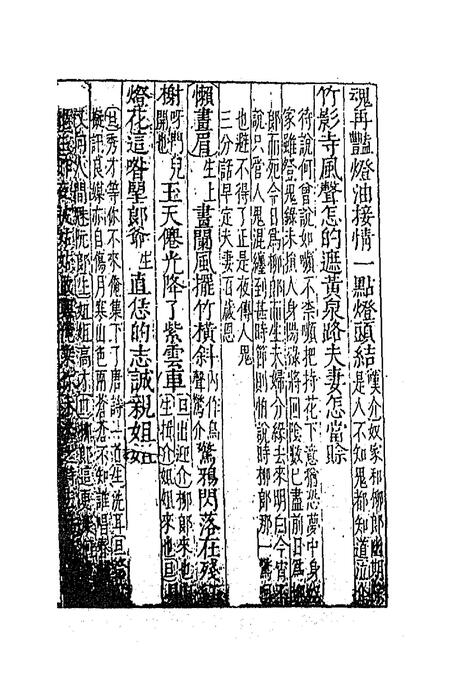 魂再豔燈油接情一點燈頭結嘆介奴家和柳郎幽期除
是人不知鬼都知道泣介
竹影寺風聲怎的遮黃泉路夫妻怎當賖
待說何曾說如嚬不柰嚬把持花下意猶恐夢中身
家雖登鬼錄未損人身陽祿將回陰數已盡前日為
郎而死今日為柳郎而生夫婦分緣去來明白今宵不
說只管人鬼混纏到甚時節則怕說時柳郎那一驚
也避不得了正是夜傳人鬼
三分話早定夫妻百歲恩
懶畫眉生上畫闌風擺竹橫斜內作鳥聲驚介驚鴉閃落在殘
榭呀門兒開也玉天僊光降了紫雲車旦出迎介柳郎來也生揖介姐姐來也旦
燈花這咱望郎爺生直恁的志誠親姐姐
旦秀才等你不來俺集下了唐詩一首生洗耳旦
擬託良媒亦自傷月寒山色兩蒼蒼不知誰唱春
又向人間魅阮郎生姐姐高才旦柳郎這更